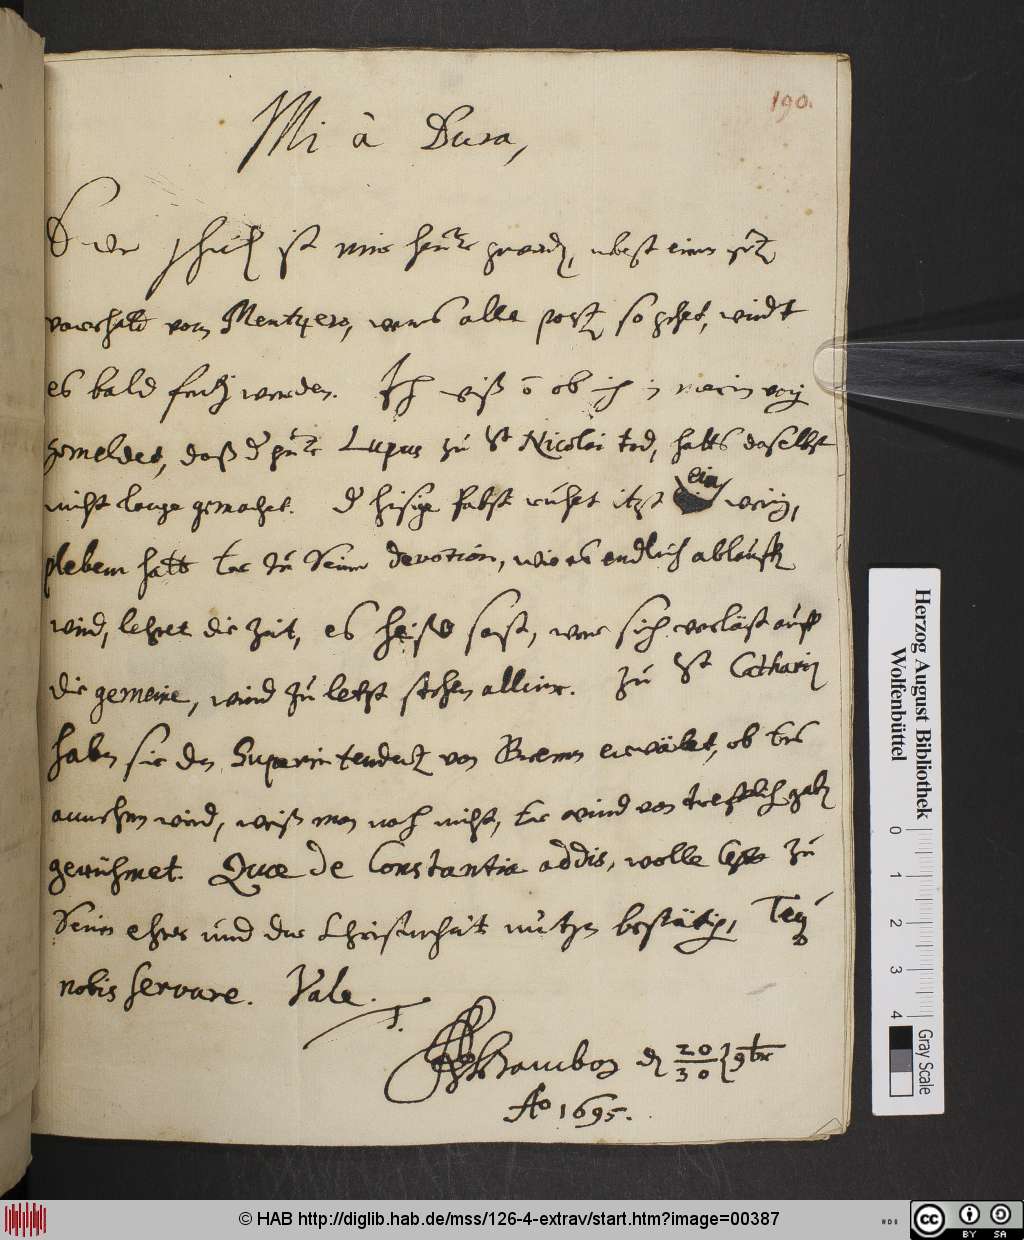 190.
Mi à Dura,
ist mir heute worden, nebst einer
vom Mentzero, wens alle so gehet, wirdt
es bald werden. Ich ob ich in mein
gemeldet, daß Lupus zu St Nicolai tod, hatts daselbst
nicht lange gemachet. Pabst ruhet itzt ein wenig,
plebem hatt Er zu Seiner devotion, wie es endlich ablauffen
wird, lehret die Zeit, es heist sonst, wer sich verläst auff
die gemeine, wird zu letzt stehen alleine. Zu St Catharin
haben sie den Superintendent von Bremen erwälet, ob Ers
annehmen wird, weiß man noch nicht, Er wird von trefflich gaben
gerühmet. Quæ de Constantia addis, wolle Gott zu
Seinen ehren und der Christenheit nutzen bestätigen, Teque
nobis servare. Vale.
T.
Hamburg d 20/30 9br
Ao 1695.
Herzog August Bibliothek
Wolfenbüttel
0 1 2 3 4
Gray Scale
© HAB http://diglib.hab.de/mss/126-4-extrav/start.htm?image=00387
cc BY SA